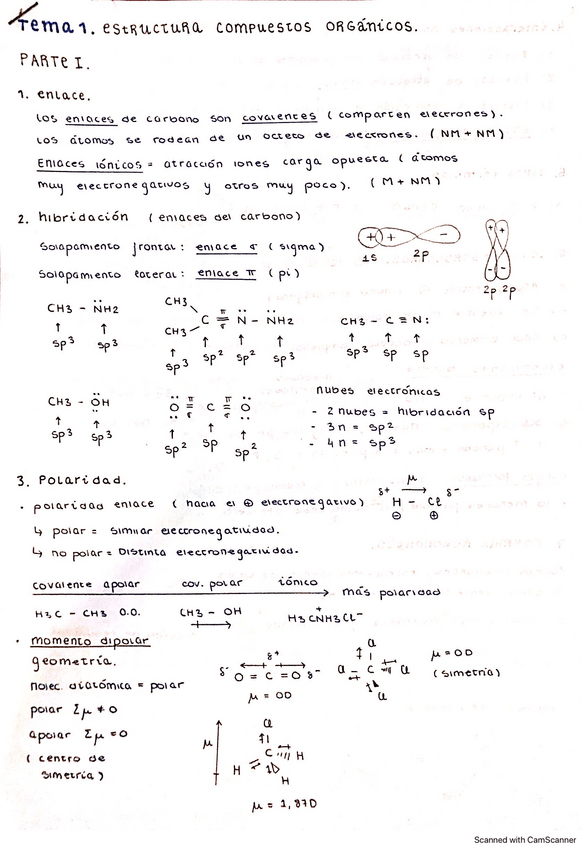 Tema 1. estructura compuestos orgánicos.
PARTE I.
1. enlace.
Los enlaces de carbono son covalentes (comparten electrones).
Los átomos se rodean de un octeto de electrones. (NM + NM)
Enlaces iónicos = atracción iones carga opuesta (átomos
muy electronegativos y otros muy poco). (M + NM)
2. hibridación (enlaces del carbono)
Solapamiento frontal: enlace σ (sigma)
Solapamiento lateral: enlace π (pi)
+ + -
1s 2p
+ +
- -
2p 2p
CH3 - NH2
↑ ↑
sp3 sp3
CH3
CH3
C = N - NH2
π
σ
↑ ↑ ↑ ↑
sp3 sp2 sp2 sp3
CH3 - C ≡ N:
↑ ↑ ↑
sp3 sp sp
CH3 - OH
↑ ↑
sp3 sp3
O = C = O
π π
σ σ
↑ ↑ ↑
sp2 sp sp2
nubes electrónicas
- 2 nubes = hibridación sp
- 3n = sp2
- 4n = sp3
3. Polaridad.
· polaridad enlace (hacia el ⊕ electronegativo)
μ
δ+ → δ-
H - Cl
⊖ ⊕
↳ polar = similar electronegatividad.
↳ no polar = Distinta electronegatividad.
covalente apolar cov. polar iónico → más polaridad
H3C - CH3 0.0. CH3 - OH H3CNH3Cl-
+
· momento dipolar
geometría.
molec. diatómica = polar
polar Σμ ≠ 0
apolar Σμ = 0
(centro de
simetría)
δ+
δ- O = C = O δ-
μ = 0D
Cl
Cl - C Cl
Cl
μ = 0D
(simetría)
μ
Cl
C H
H
H
μ = 1,87D
Scanned with CamScanner